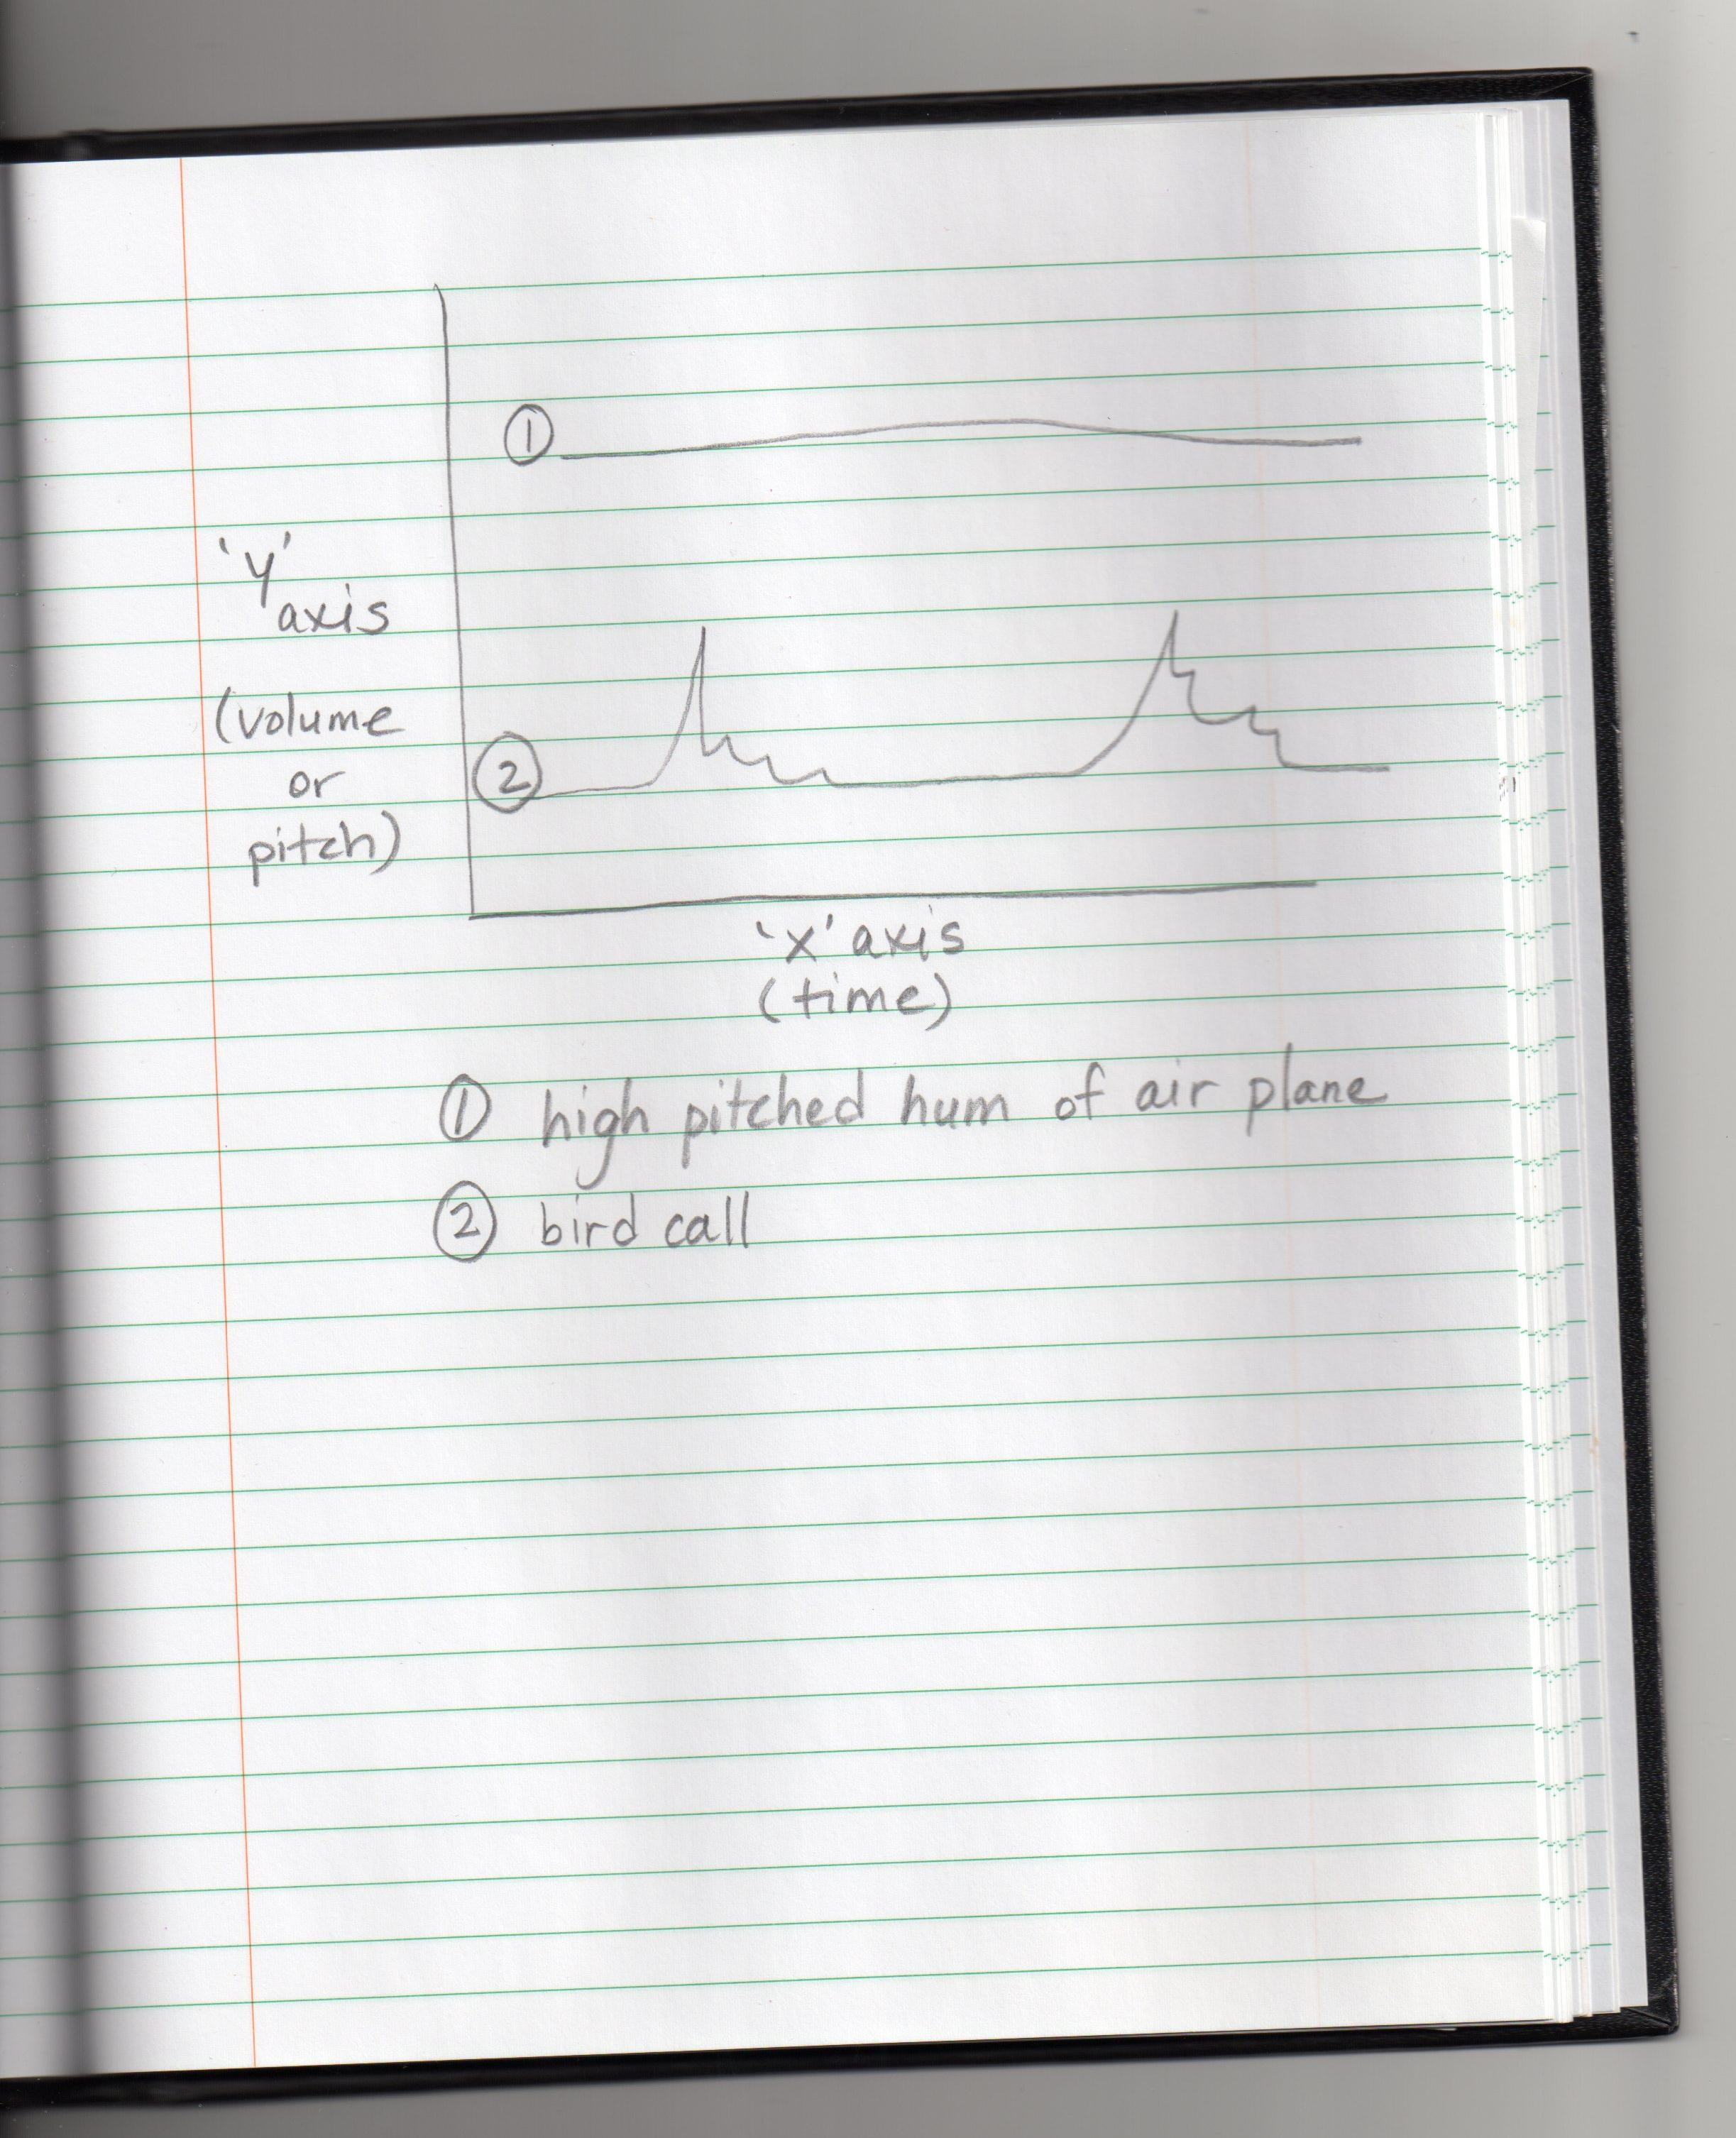 ①
'y'
axis
(volume
or
pitch)
②
'x' axis
(time)
① high pitched hum of air plane
② bird call